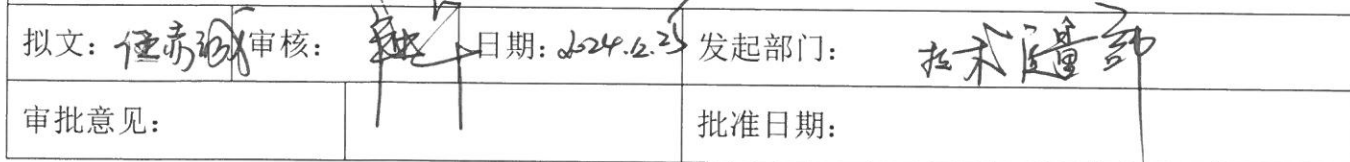 拟文： 审核： 日期：2024.12.25 发起部门：技术质量部
审批意见： 批准日期：